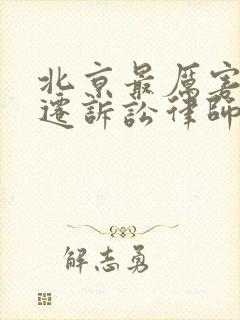 北京最厉害
遷訴訟律師
解志勇